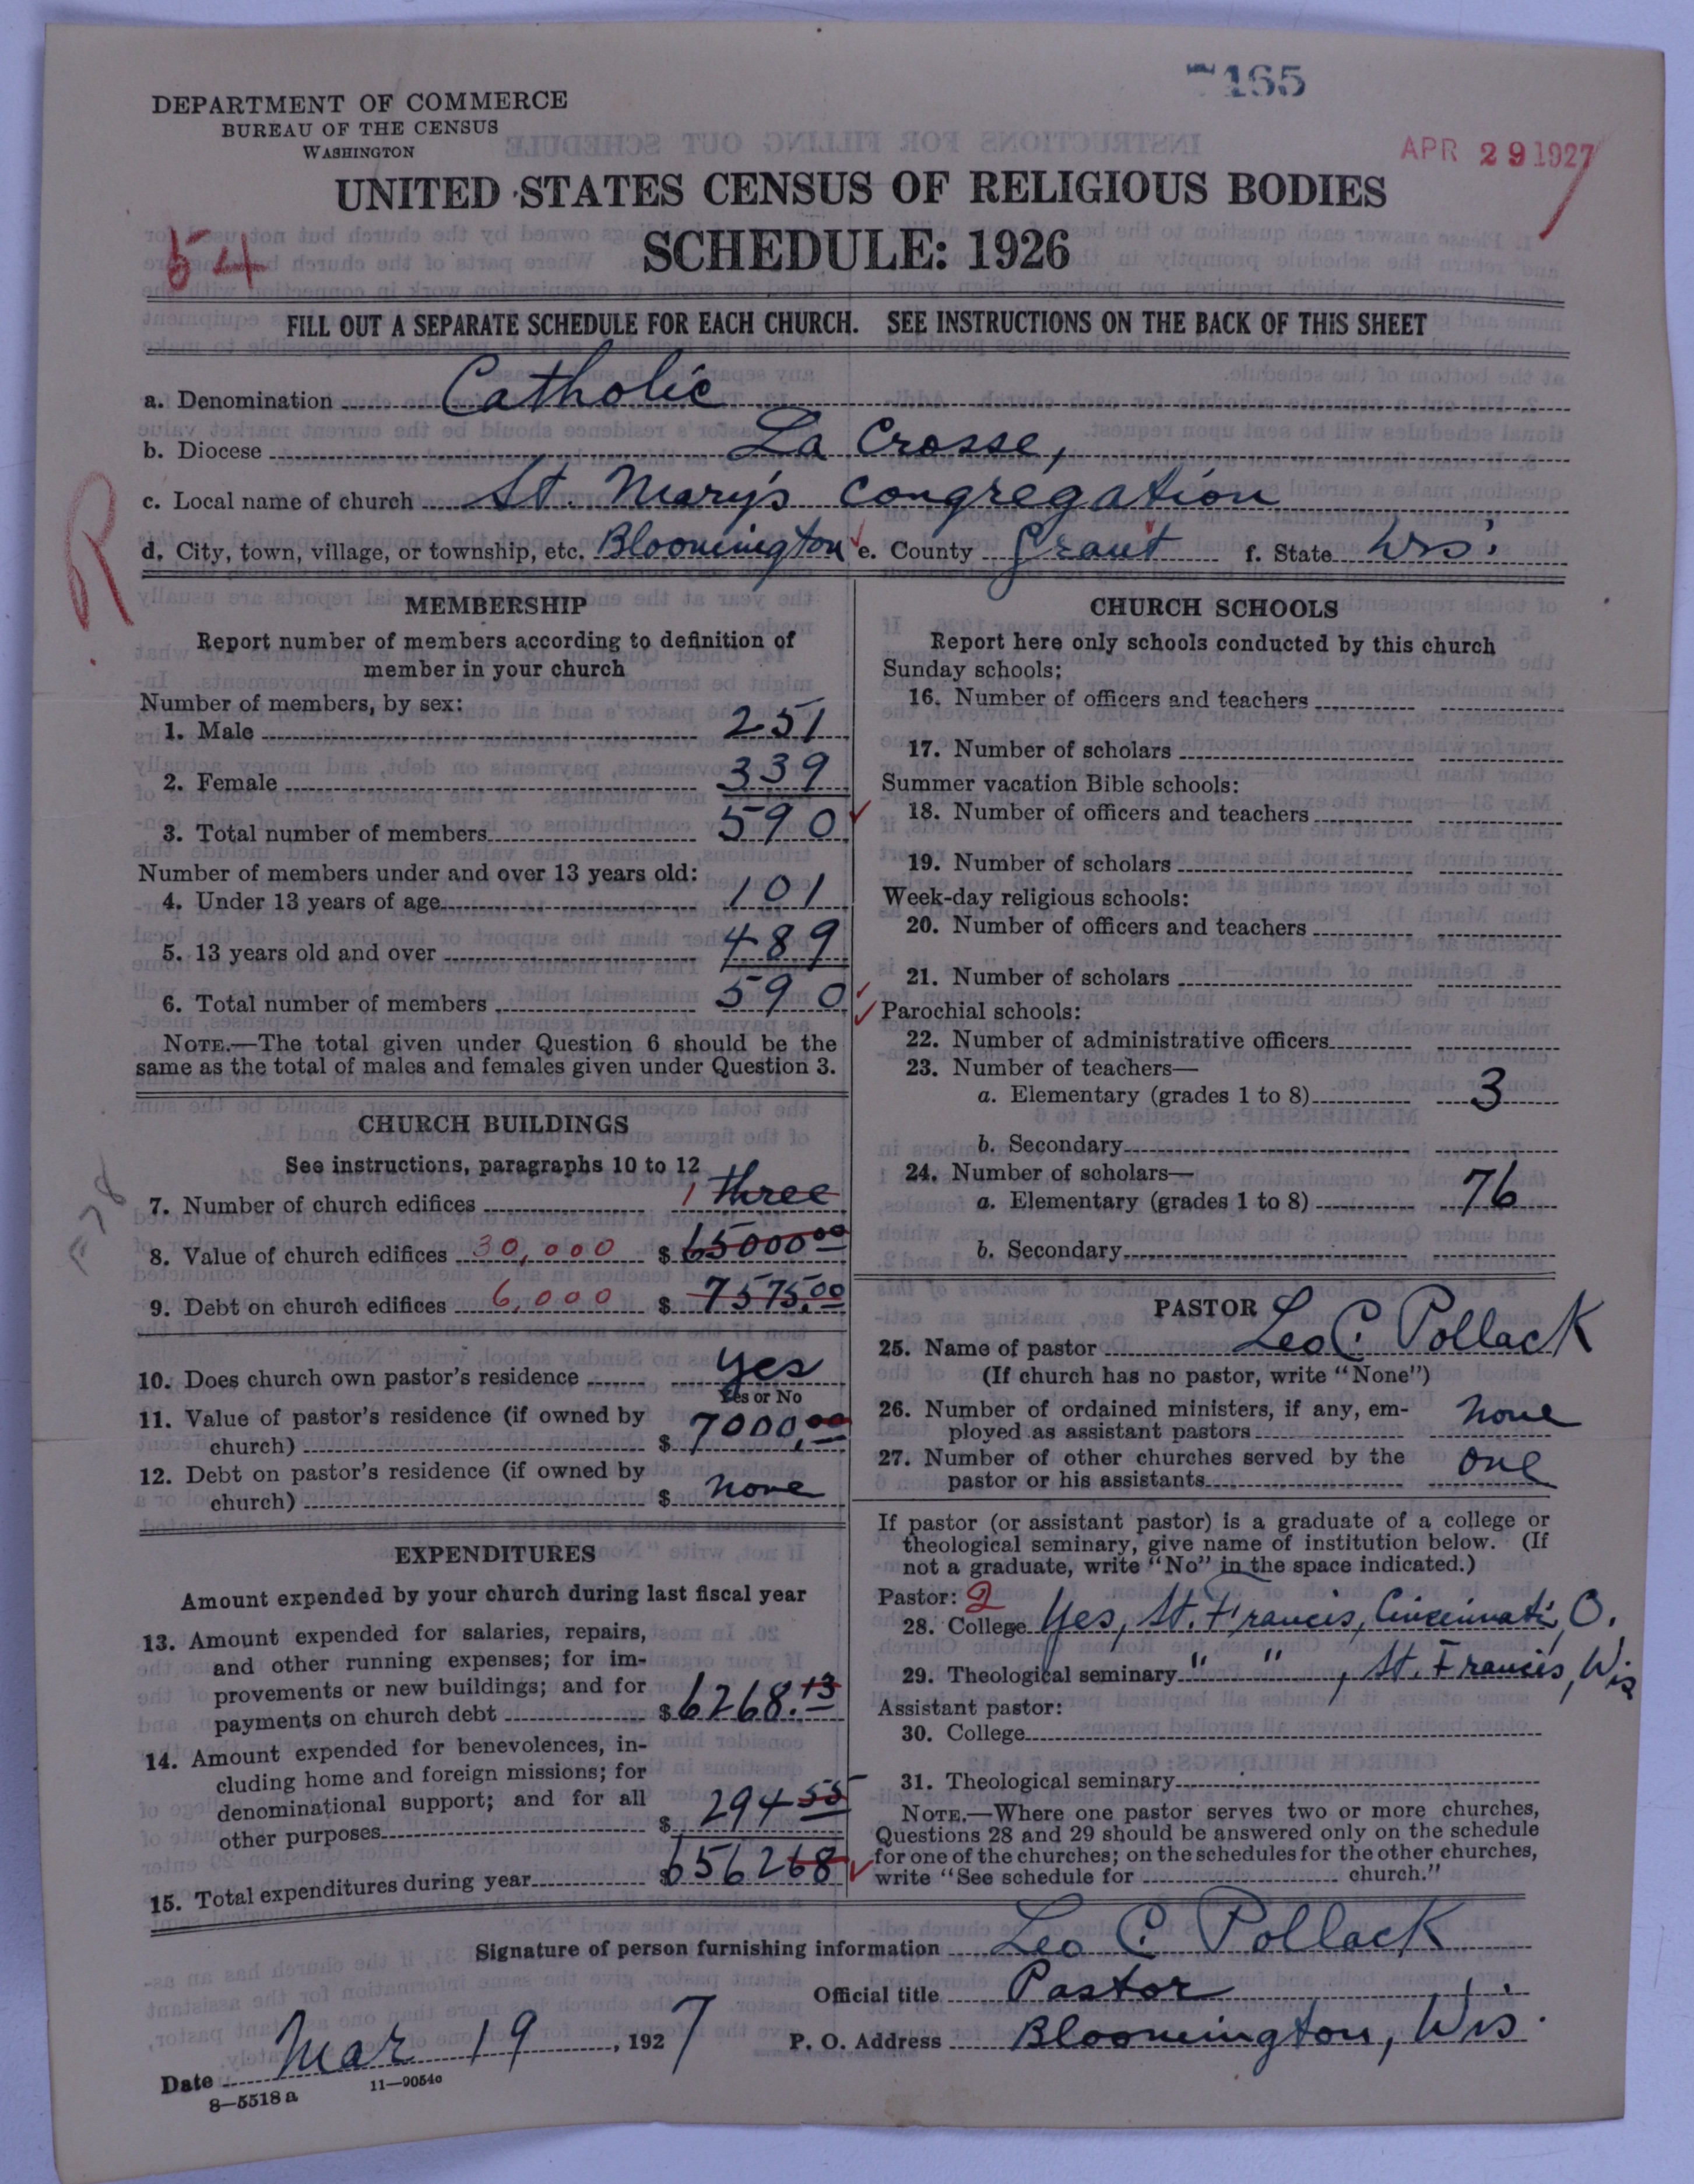 7465
DEPARTMENT OF COMMERCE
BUREAU OF THE CENSUS
WASHINGTON
APR 29 1927
UNITED STATES CENSUS OF RELIGIOUS BODIES
54
SCHEDULE: 1926
FILL OUT A SEPARATE SCHEDULE FOR EACH CHURCH. SEE INSTRUCTIONS ON THE BACK OF THIS SHEET
a. Denomination Catholic
b. Diocese La Crosse,
c. Local name of church St. Mary's Congregation
d. City, town, village, or township, etc. Bloomington e. County Grant f. State Wis.
R
MEMBERSHIP
Report number of members according to definition of
member in your church
Number of members, by sex:
1. Male 251
2. Female 339
3. Total number of members 590
Number of members under and over 13 years old:
4. Under 13 years of age 101
5. 13 years old and over 489
6. Total number of members 590
NOTE.—The total given under Question 6 should be the
same as the total of males and females given under Question 3.
CHURCH BUILDINGS
See instructions, paragraphs 10 to 12
7. Number of church edifices 1 three
8. Value of church edifices 30,000 $ 65000.00
9. Debt on church edifices 6,000 $ 7575.00
10. Does church own pastor's residence yes
Yes or No
11. Value of pastor's residence (if owned by
church) $ 7000.00
12. Debt on pastor's residence (if owned by
church) $ none
EXPENDITURES
Amount expended by your church during last fiscal year
13. Amount expended for salaries, repairs,
and other running expenses; for im-
provements or new buildings; and for
payments on church debt $ 6268.13
14. Amount expended for benevolences, in-
cluding home and foreign missions; for
denominational support; and for all
other purposes $ 294 55
15. Total expenditures during year $ 6562 68
CHURCH SCHOOLS
Report here only schools conducted by this church
Sunday schools:
16. Number of officers and teachers
17. Number of scholars
Summer vacation Bible schools:
18. Number of officers and teachers
19. Number of scholars
Week-day religious schools:
20. Number of officers and teachers
21. Number of scholars
Parochial schools:
22. Number of administrative officers
23. Number of teachers—
a. Elementary (grades 1 to 8) 3
b. Secondary
24. Number of scholars—
a. Elementary (grades 1 to 8) 76
b. Secondary
PASTOR
25. Name of pastor Leo C. Pollack
(If church has no pastor, write "None")
26. Number of ordained ministers, if any, em-
ployed as assistant pastors none
27. Number of other churches served by the
pastor or his assistants one
If pastor (or assistant pastor) is a graduate of a college or
theological seminary, give name of institution below. (If
not a graduate, write "No" in the space indicated.)
Pastor: 2
28. College Yes, St. Francis, Cincinnati, O.
29. Theological seminary " " , St. Francis, Wis
Assistant pastor:
30. College
31. Theological seminary
NOTE.—Where one pastor serves two or more churches,
Questions 28 and 29 should be answered only on the schedule
for one of the churches; on the schedules for the other churches,
write "See schedule for church."
Signature of person furnishing information Leo C. Pollack
Official title Pastor
Date Mar 19, 1927 P. O. Address Bloomington, Wis.
8—5518 a 11—9054c